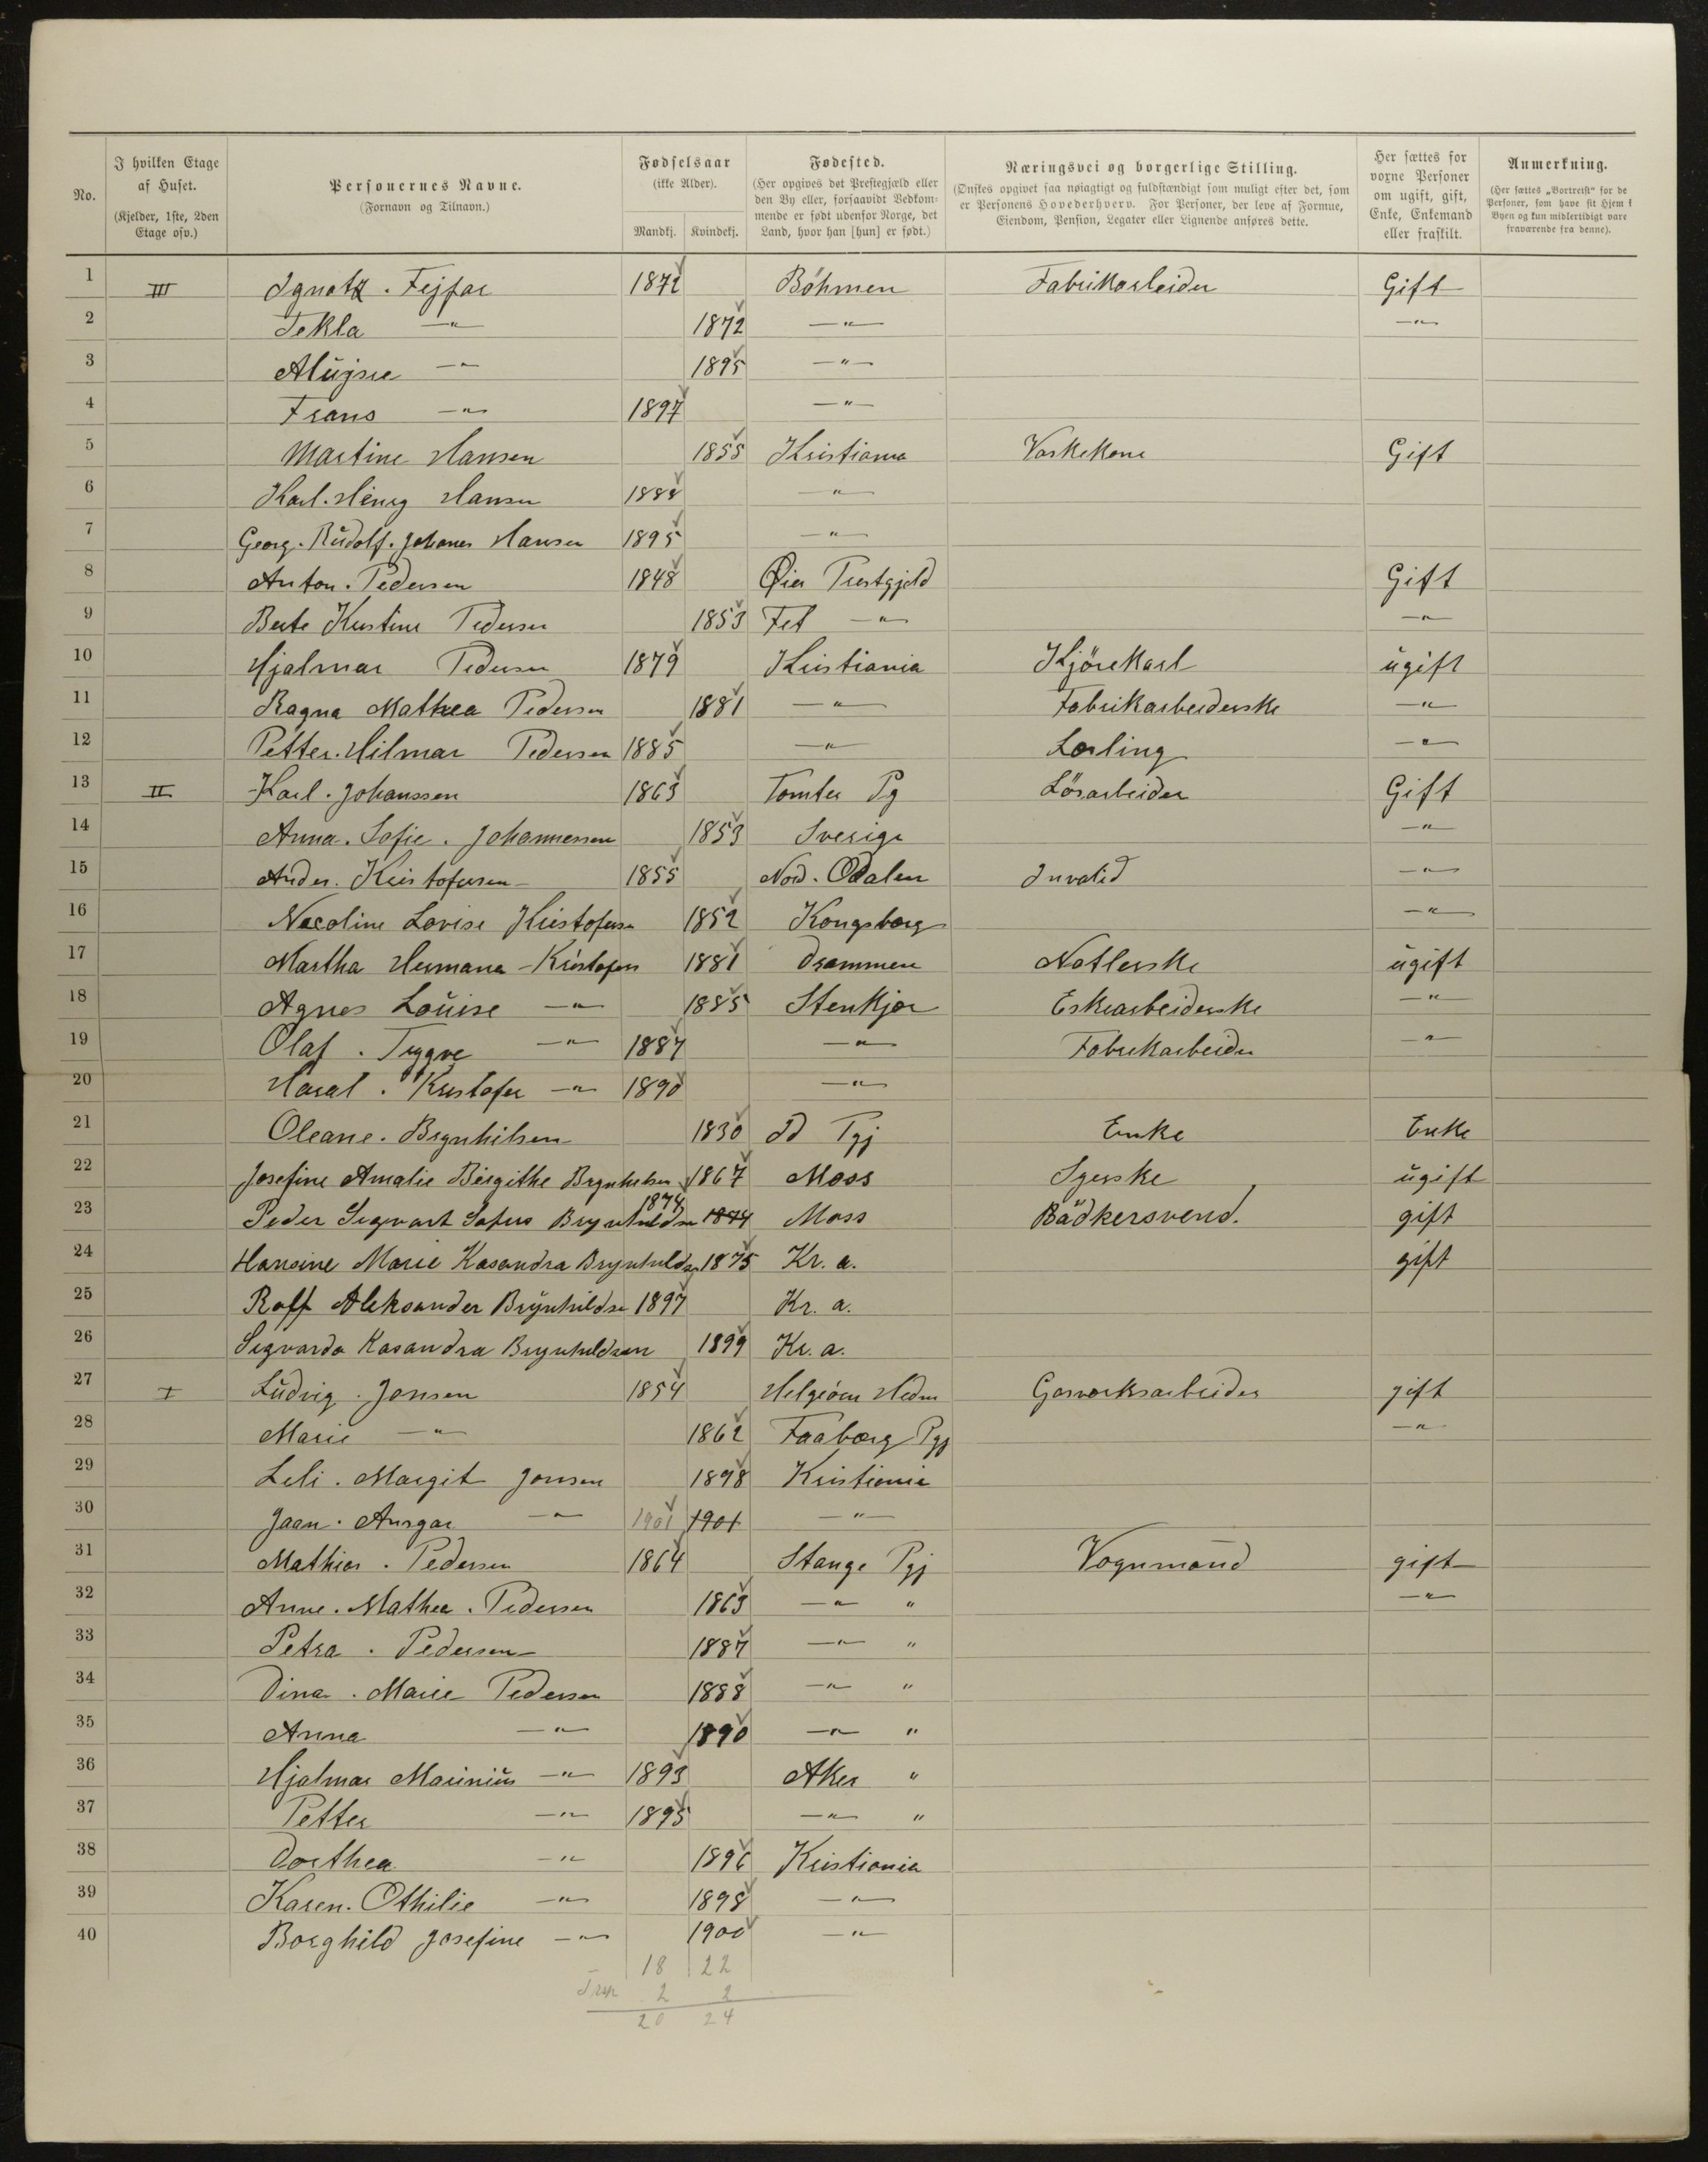 No.
I hvilken Etage af Huset. (Kjelder, 1ste, 2den Etage osv.)
Personernes Navne. (Fornavn og Tilnavn.)
Fødselsaar (ikke Alder). Mandkj. Kvindekj.
Fødested. (Her opgives det Prestegjæld eller den By eller, forsaavidt Vedkommende er født udenfor Norge, det Land, hvor han [hun] er født.)
Næringsvei og borgerlige Stilling. (Ønskes opgivet saa nøiagtigt og fuldstændigt som muligt efter det, som er Personens Hovederhverv. For Personer, der leve af Formue, Eiendom, Pension, Legater eller Lignende anføres dette.
Her sættes for voxne Personer om ugift, gift, Enke, Enkemand eller fraskilt.
Anmerkning. (Her sættes „Bortreist" for de Personer, som have sit Hjem i Byen og kun midlertidigt vare fraværende fra denne).
1 III Ignatz . Fejfar 1872 Böhmen Fabrikarbeider Gift
2 Tekla —"— 1872 —"— —"—
3 Alŭjsie —"— 1895 —"—
4 Frans —"— 1897 —"—
5 Martine Hansen 1855 Kristiania Vaskekone Gift
6 Karl. Henry Hansen 1888 —"—
7 Georg. Rŭdolf. Johanes Hansen 1895 —"—
8 Anton. Pedersen 1848 Øier Prestgjeld Gift
9 Berte Kristine Pedersen 1853 Fet —"— —"—
10 Hjalmar Pedersen 1879 Kristiania Kjörekarl ŭgift
11 Ragna Mathea Pedersen 1881 —"— Fabrikarbeiderske —"—
12 Petter. Hilmar Pedersen 1885 —"— Lærling —"—
13 II Karl. Johanssen 1863 Tomter Pg Lösarbeider Gift
14 Anna. Sofie. Johannessen 1853 Sverige —"—
15 Anders. Kristofersen 1855 Nord. Odalen Invalid —"—
16 Necoline Lovise Kristofersen 1852 Kongsberg —"—
17 Martha Hermana Kristofers 1881 Drammen Notlerske ŭgift
18 Agnes Loŭise —"— 1885 Stenkjær Eskearbeiderske —"—
19 Olaf . Trygve —"— 1887 —"— Fabrikarbeider —"—
20 Haral . Kristofer —"— 1890 —"—
21 Oleane. Brynhilsen 1830 Id Pgj Enke Enke
22 Josefine Amalie Birgithe Brynhilsen 1867 Moss Syerske ŭgift
23 Peder Sigvart Sofus Brynhildsen 1874 1874 Moss Bådkersvend. gift
24 Hansine Marie Kasandra Brynhilds 1875 Kr. a. gift
25 Rolf Aleksander Brynhildse 1897 Kr. a.
26 Sigvarda Kasandra Brynhildsen 1899 Kr. a.
27 I Lŭdvig. Jonsen 1854 Helgöen Hedm Gasværksarbeider gift
28 Marie —"— 1862 Faaberg Pgj —"—
29 Leli. Margit Jonsen 1898 Kristiania
30 Jaan. Ansgar —"— 1901 1901 —"—
31 Mathias . Pedersen 1864 Stange Pgj Vognmand gift
32 Anne. Mathea. Pedersen 1863 —"— " —"—
33 Petra . Pedersen 1887 —"— "
34 Dina . Marie Pedersen 1888 —"— "
35 Anna —"— 1890 —"— "
36 Hjalmar Mariniŭs —"— 1893 Aker "
37 Petter —"— 1895 —"— "
38 Dorthea —"— 1896 Kristiania
39 Karen. Othilie —"— 1898 —"—
40 Borghild Josefine —"— 1900 —"—
18 22
2 2
20 24